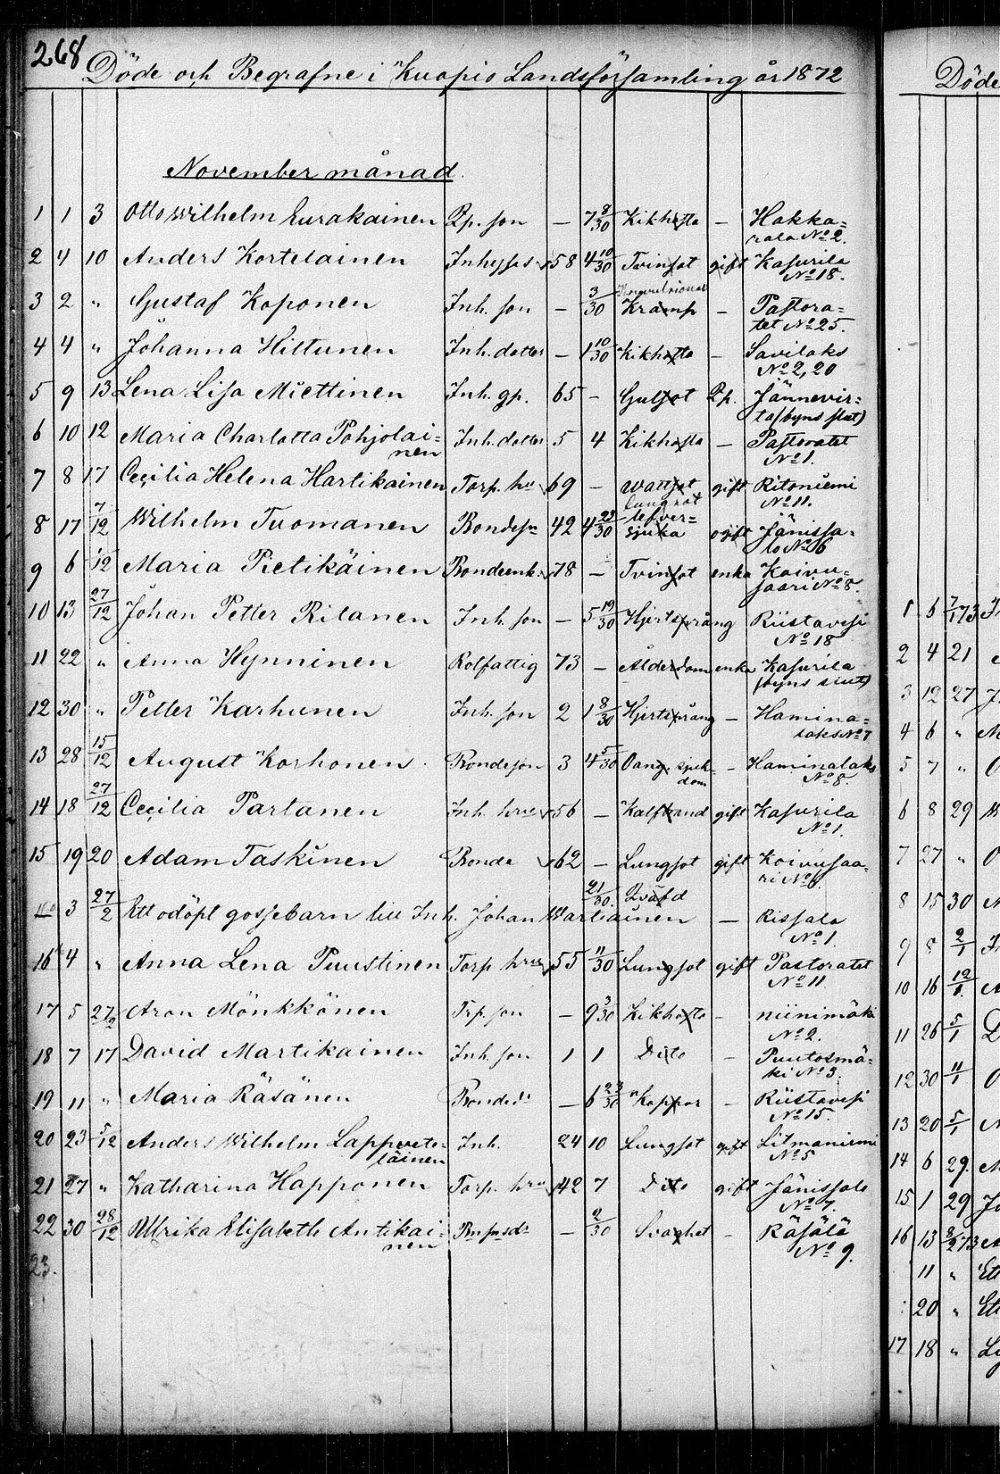 268
Döde och Begrafne i Kuopio Landsförsamling år 1872
November månad.
1 1 3 Otto Wilhelm Eurakainen Bp. son — 7 8/30 Kikhosta — Hakka=
rala No 2.
2 4 10 Anders Kortelainen Inhyses 58 4 10/30 Tvinsot gift Kasurila
No 18.
3 2 " Gustaf Koponen Inh. son — 3/30 Kramp — Pastora=
tet No 25.
4 4 " Johanna Hiltunen Inh. dotter — 1 10/30 Kikhosta — Savilaks
No 2, 20
5 9 13 Lena Lisa Miettinen Inh. gp. 65 — Gulsot Bp. Jännevir=
ta (byns slut)
6 10 12 Maria Charlotta Pohjolai= Inh. dotter 5 4 Kikhosta — Pastoratet
nen No 1.
7 8 17 Cecilia Helena Hartikainen Torp. hu 69 — Wattsot gift Ritoniemi
No 11.
8 17 7/12 Wilhelm Tuomanen Bondeson 42 4 23/30 lefver= ogift Jänissa=
sjuka lo No 6
9 6 15/12 Maria Pietikäinen Bondeenk. 78 — Tvinsot enka Koivu=
saari No 8.
10 13 27/12 Johan Petter Ritanen Inh. son — 5 19/30 Hjertsprång Riistavesi
No 18
11 22 " Anna Hynninen Rotfattig 73 — Ålderdom enka Kasurila
(byns slut)
12 30 " Petter Karhunen Inh. son 2 1 8/30 Hjertsprång — Hamina=
laks No 7
13 28 15/12 August Korhonen Bondeson 3 4 5/30 — Haminalaks
No 8.
14 18 27/12 Cecilia Partanen Inh. hru 56 — Kallbrand gift Kasurila
No 1.
15 19 20 Adam Taskinen Bonde 62 — Lungsot gift Koivusaa=
ri No 6.
3 27/2 Ett odöpt gossebarn till Inh. Johan Wartiainen 21/30 Qväfd — Rissala
No 1.
16 4 " Anna Lena Puustinen Torp. hru 55 11/30 Lungsot gift Pastoratet
No 11
17 5 27/12 Aron Mönkkönen Trp. son — 9 9/30 Kikhosta — Niinimäki
No 2.
18 7 17 David Martikainen Inh. son 1 1 Dito — Puutosmä=
ki No 3.
19 11 " Maria Räsänen Bonded. — 6 23/30 Koppor — Riistavesi
No 15.
20 23 5/12 Anders Wilhelm Lappvete= Inh. 24 10 Lungsot gift Litmaniemi
läinen No 5
21 27 " Katharina Happonen Torp. hru 42 7 Dito gift Jänissalo
No 7.
22 30 28/12 Ullrika Elisabeth Antikai= — 2/30 Svaghet — Räsälä
nen No 9.
23.
Döde
1 6 7/1 73
2 4 21
3 12 27
4 6 "
5 7 "
6 8 29
7 27 "
8 15 30
9 5 2/1
10 16 12/1
11 26 5/1
12 30 4/1
13 20 5/1
14 6 29.
15 1 29
16 13
11 "
20 "
17 18 "